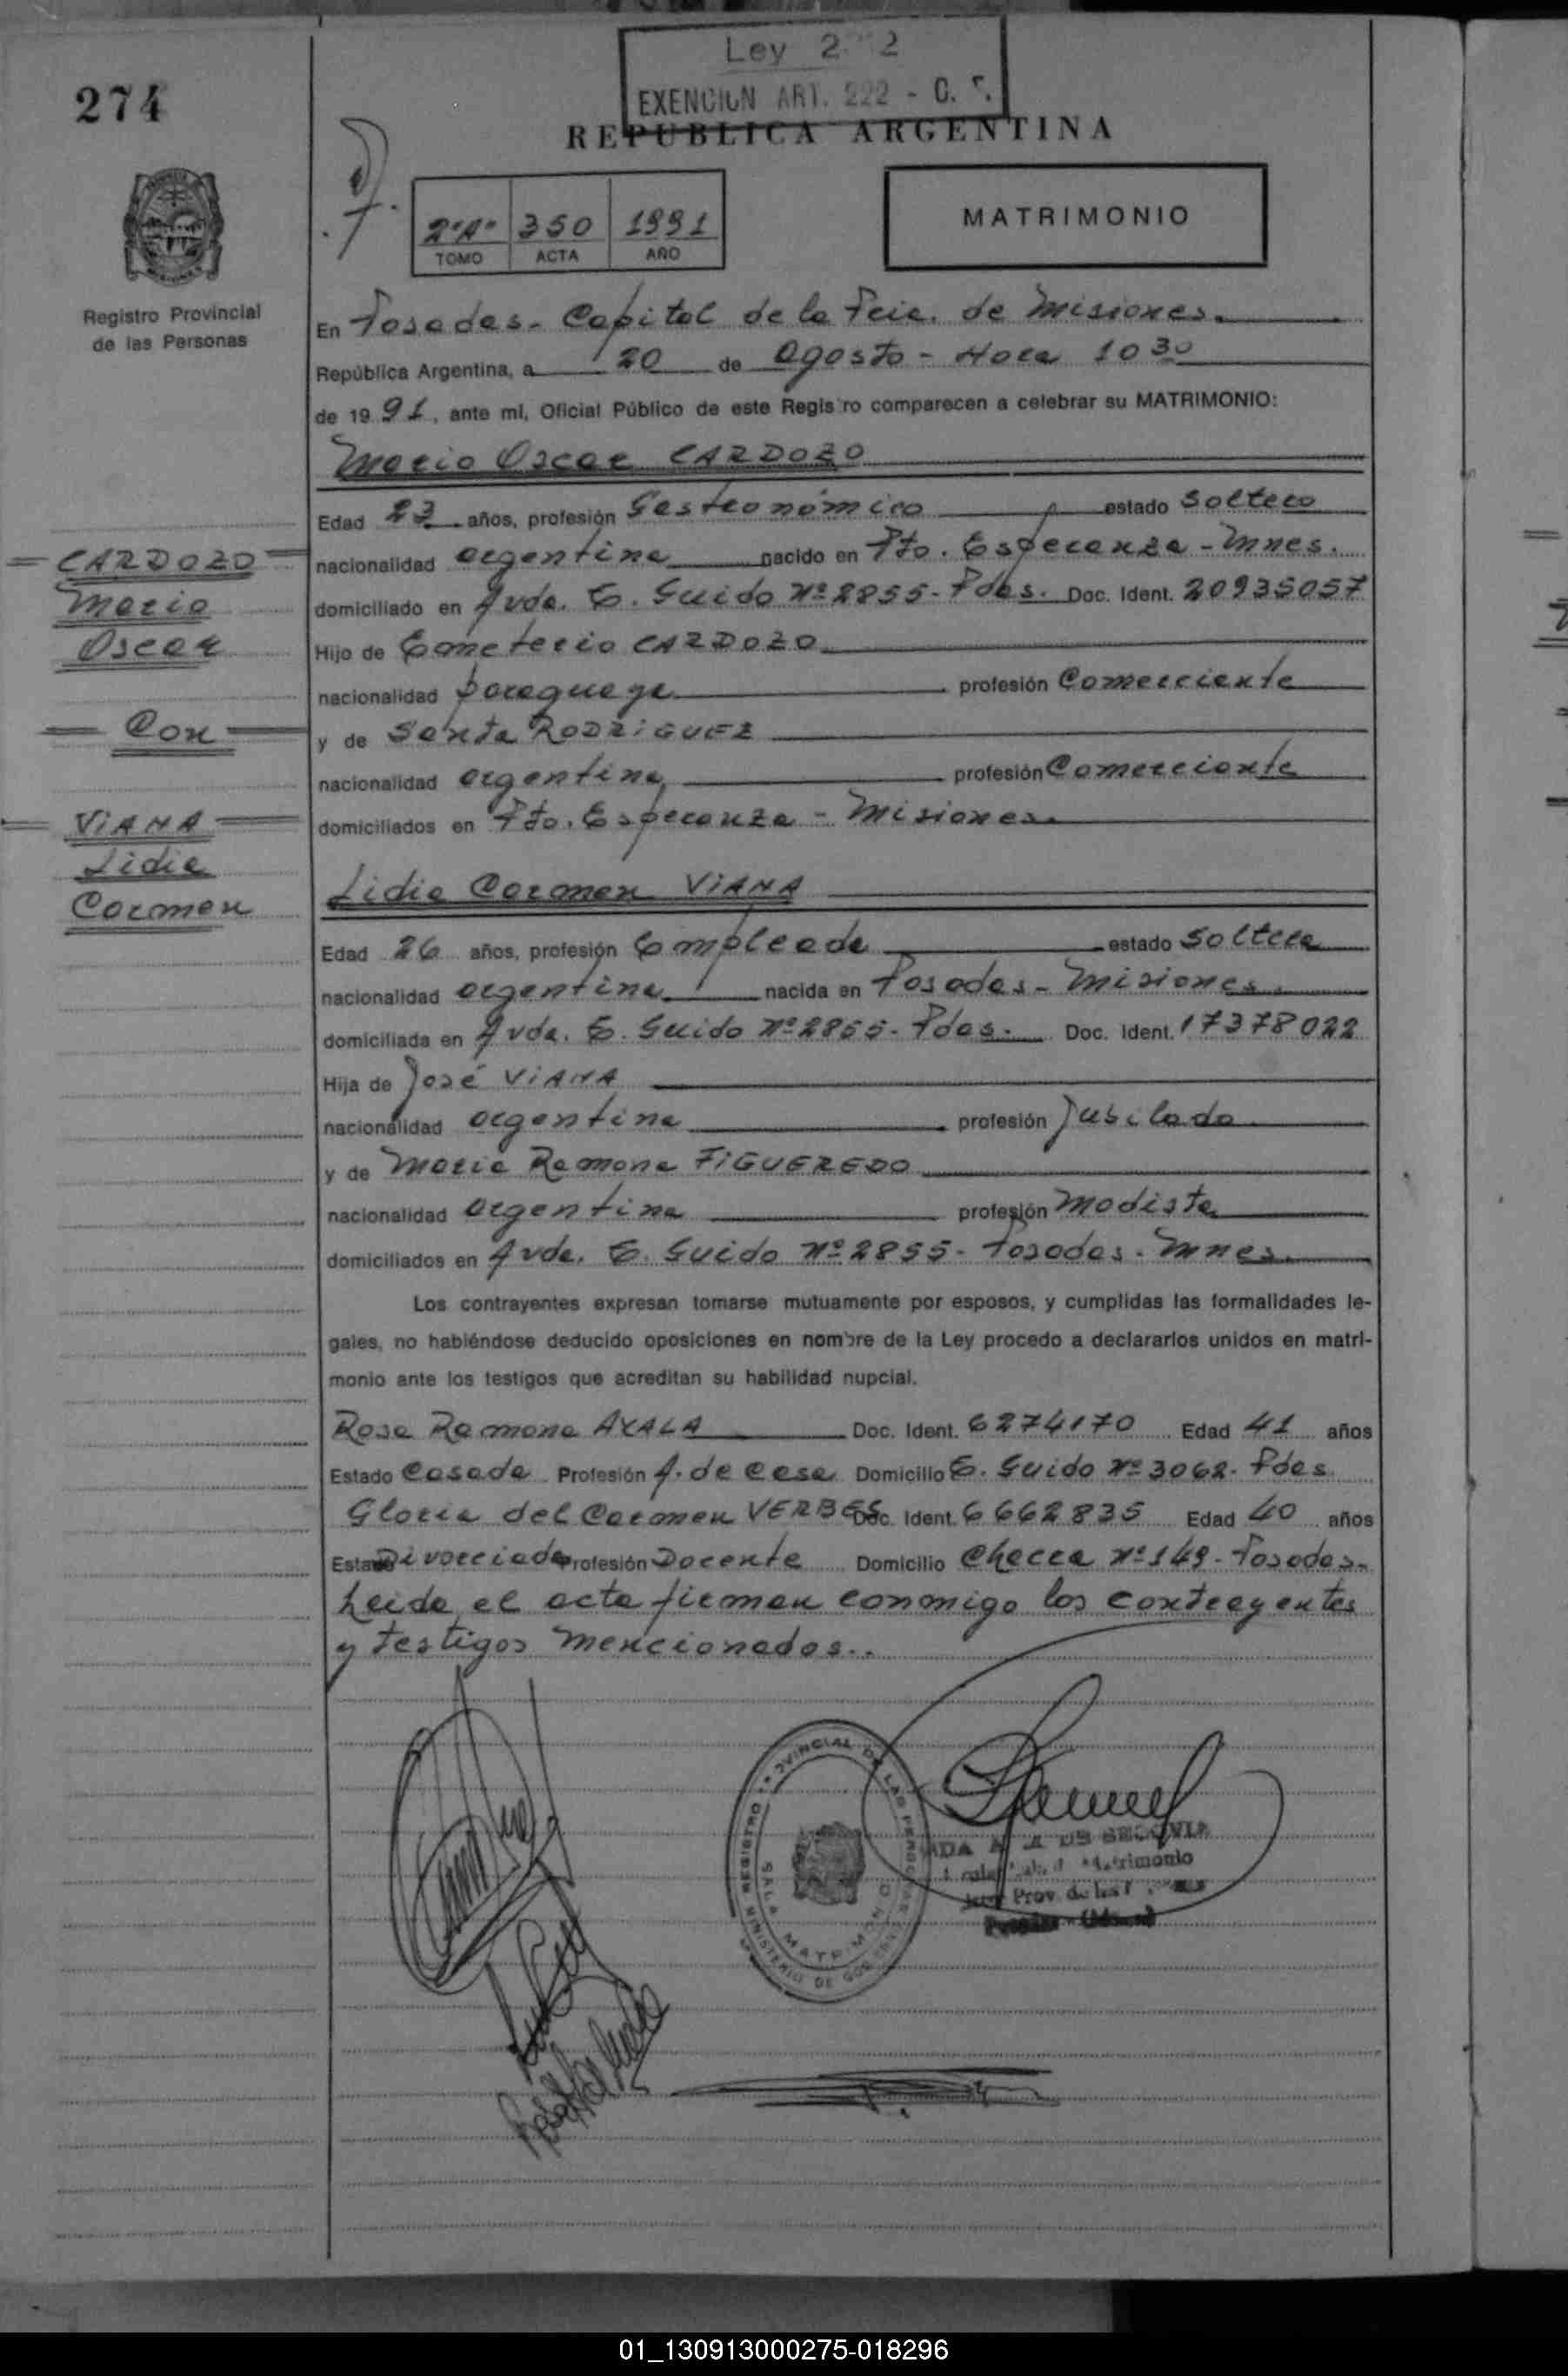 274
Ley
EXENCION ART. 222 - C. F.
REPUBLICA ARGENTINA
2º"A" 350 1991
TOMO ACTA AÑO
MATRIMONIO
Registro Provincial
de las Personas
En Posadas - Capital de la Pcia. de Misiones.
República Argentina, a 20 de Agosto - Hora 10 30
de 1991, ante mí, Oficial Público de este Registro comparecen a celebrar su MATRIMONIO:
Mario Oscar CARDOZO
Edad 23 años, profesión Gastronómico estado Soltero
nacionalidad argentina nacido en Pto. Esperanza - Mnes.
domiciliado en Avda. E. Guido Nº 2855 - Pdas. Doc. Ident. 20935057
Hijo de Emeterio CARDOZO
nacionalidad paraguaya profesión Comerciante
y de Santa RODRIGUEZ
nacionalidad argentina profesión Comerciante
domiciliados en Pto. Esperanza - Misiones.
CARDOZO
Mario
Oscar
Con
VIANA
Lidia
Carmen
Lidia Carmen VIANA
Edad 26 años, profesión Empleada estado Soltera
nacionalidad argentina nacida en Posadas - Misiones.
domiciliada en Avda. E. Guido Nº 2855 - Pdas. Doc. Ident. 17378022
Hija de José VIANA
nacionalidad argentina profesión Jubilado
y de María Ramona FIGUEREDO
nacionalidad argentina profesión Modista
domiciliados en Avda. E. Guido Nº 2855 - Posadas - Mnes.
Los contrayentes expresan tomarse mutuamente por esposos, y cumplidas las formalidades le-
gales, no habiéndose deducido oposiciones en nombre de la Ley procedo a declararlos unidos en matri-
monio ante los testigos que acreditan su habilidad nupcial.
Rosa Ramona AYALA Doc. Ident. 6274170 Edad 41 años
Estado Casada Profesión A. de casa Domicilio E. Guido Nº 3062 - Pdas.
Gloria del Carmen VERBES Doc. Ident. 6662835 Edad 40 años
Estado Divorciada Profesión Docente Domicilio Checca Nº 149 - Posadas -
Leída el acta firman conmigo los contrayentes
y testigos mencionados..
REGISTRO PROVINCIAL DE LAS PERSONAS
SALA MATRIMONIO
MINISTERIO DE GOBIERNO
DE SEGOVIA
Matrimonio
Prov. de las
01_130913000275-018296